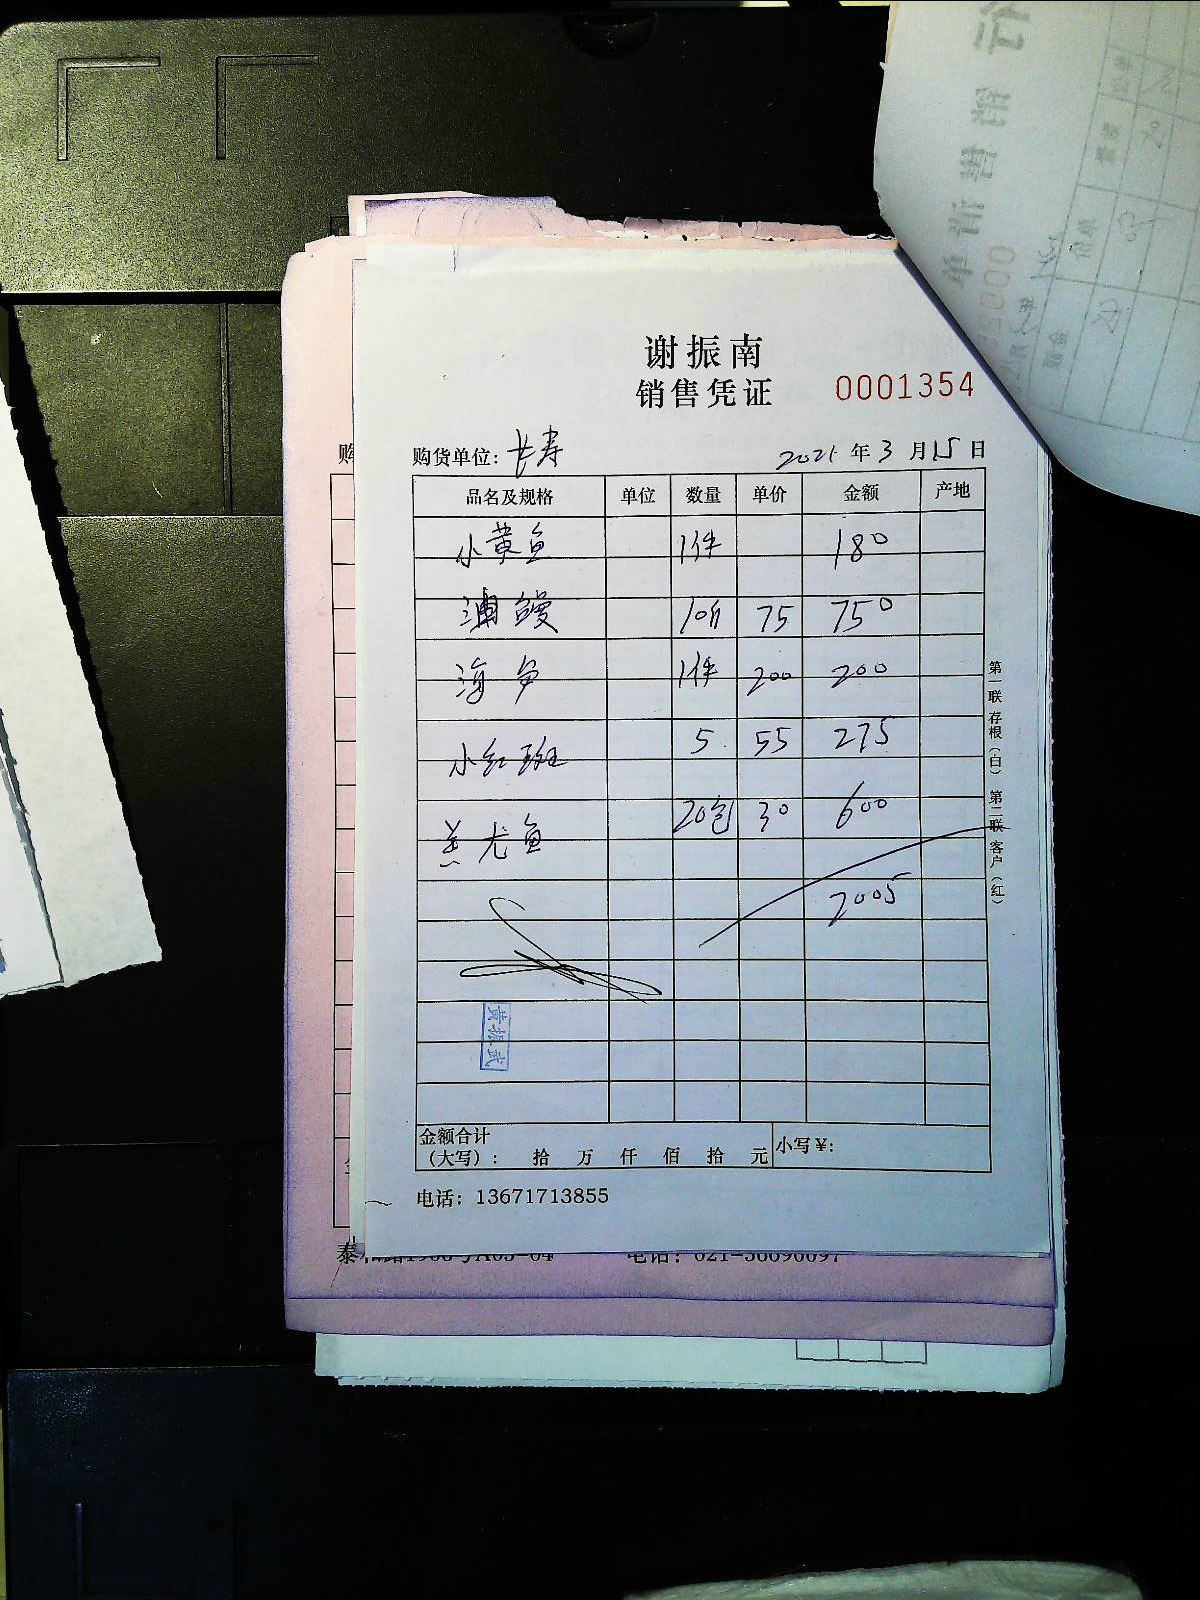 谢振南
销售凭证 0001354
购货单位: 长寿 2021 年 3 月 15 日
品名及规格 单位 数量 单价 金额 产地
小黄鱼 1件 180
鳗 10斤 75 750
海 1件 200 200
小红斑 5 55 275
龙鱼 20包 30 600
2005
黄振武
金额合计
（大写）: 拾 万 仟 佰 拾 元 小写￥:
电话: 13671713855
第一联 存根（白） 第二联 客户（红）
购
电话: 021-56690697